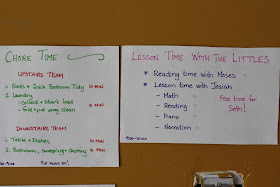 CHORE TIME
UPSTAIRS TEAM
1. Beds & Quick Bedroom Tidy 10 MIN
2. Laundry
- collect & start load
- fold & put away clean
DOWNSTAIRS TEAM
1. Table & Dishes
2. Bathrooms, Sweeping & Dusting
Put music on!
LESSON TIME WITH THE LITTLES
* Reading time with Moses
* Lesson time with Josiah
- Math
- Reading
- Piano
- Narration
Free time for
Seth!